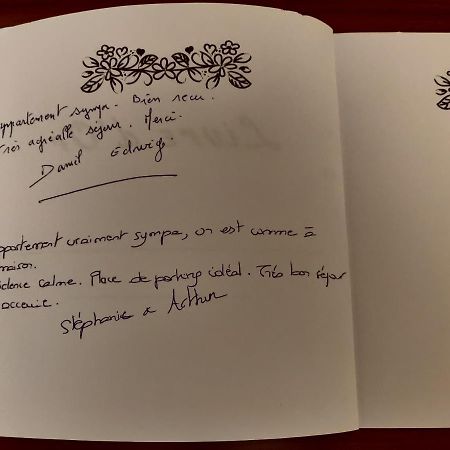 appartement sympa. Bien reçu.
très agréable séjour. Merci.
Daniel Edwige
appartement vraiment sympa, on est comme à
maison.
idence calme. Place de parking idéal. Très bon séjour
occanie.
Stéphanie & Arthur